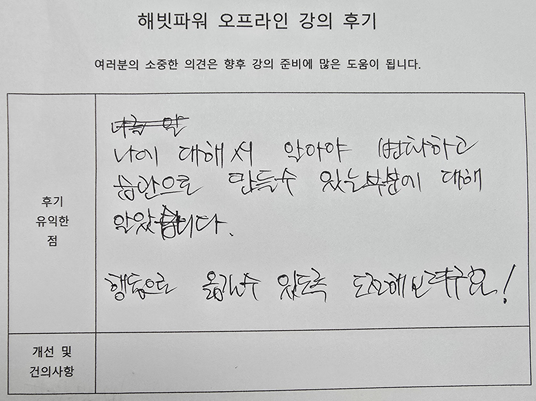 해빗파워 오프라인 강의 후기
여러분의 소중한 의견은 향후 강의 준비에 많은 도움이 됩니다.
후기
유익한
점
나에 대해서 알아야 변화하고
습관으로 만들수 있는부분에 대해
알았습니다.
행동으로 옮길수 있도록 도전해보려구요!
개선 및
건의사항